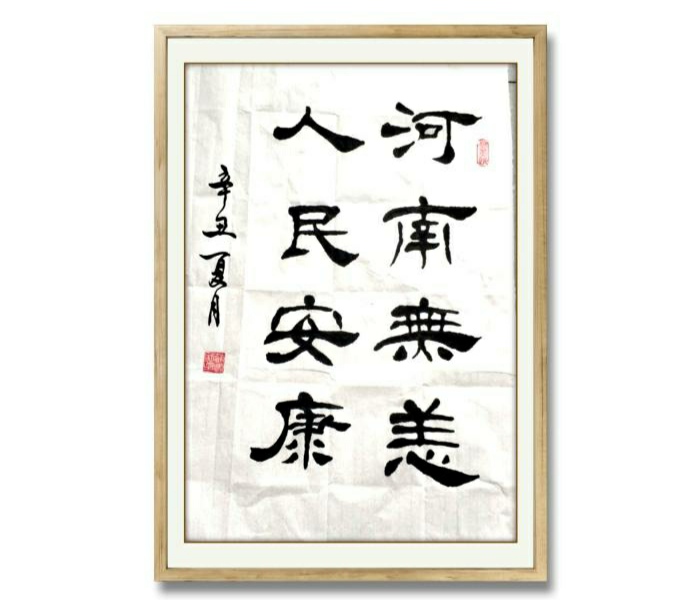 河南無恙
人民安康
辛丑夏月